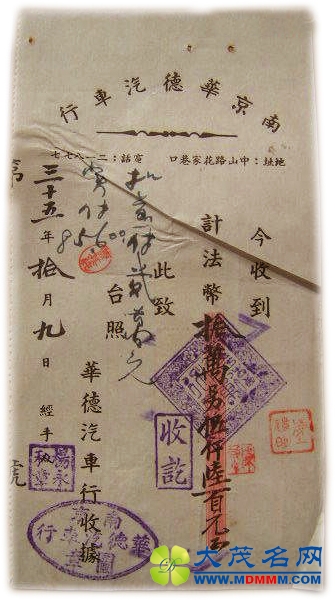 南京華德汽車行
地址：中山路花家巷口
電話：二一八七七
今收到
計法幣拾萬另伍仟陸百元正
收訖
此致
貳萬元
台照
實付
85600
華德汽車行收據
三十五年拾月九日 經手
第 號
大茂名网
WWW.MDMMM.COM